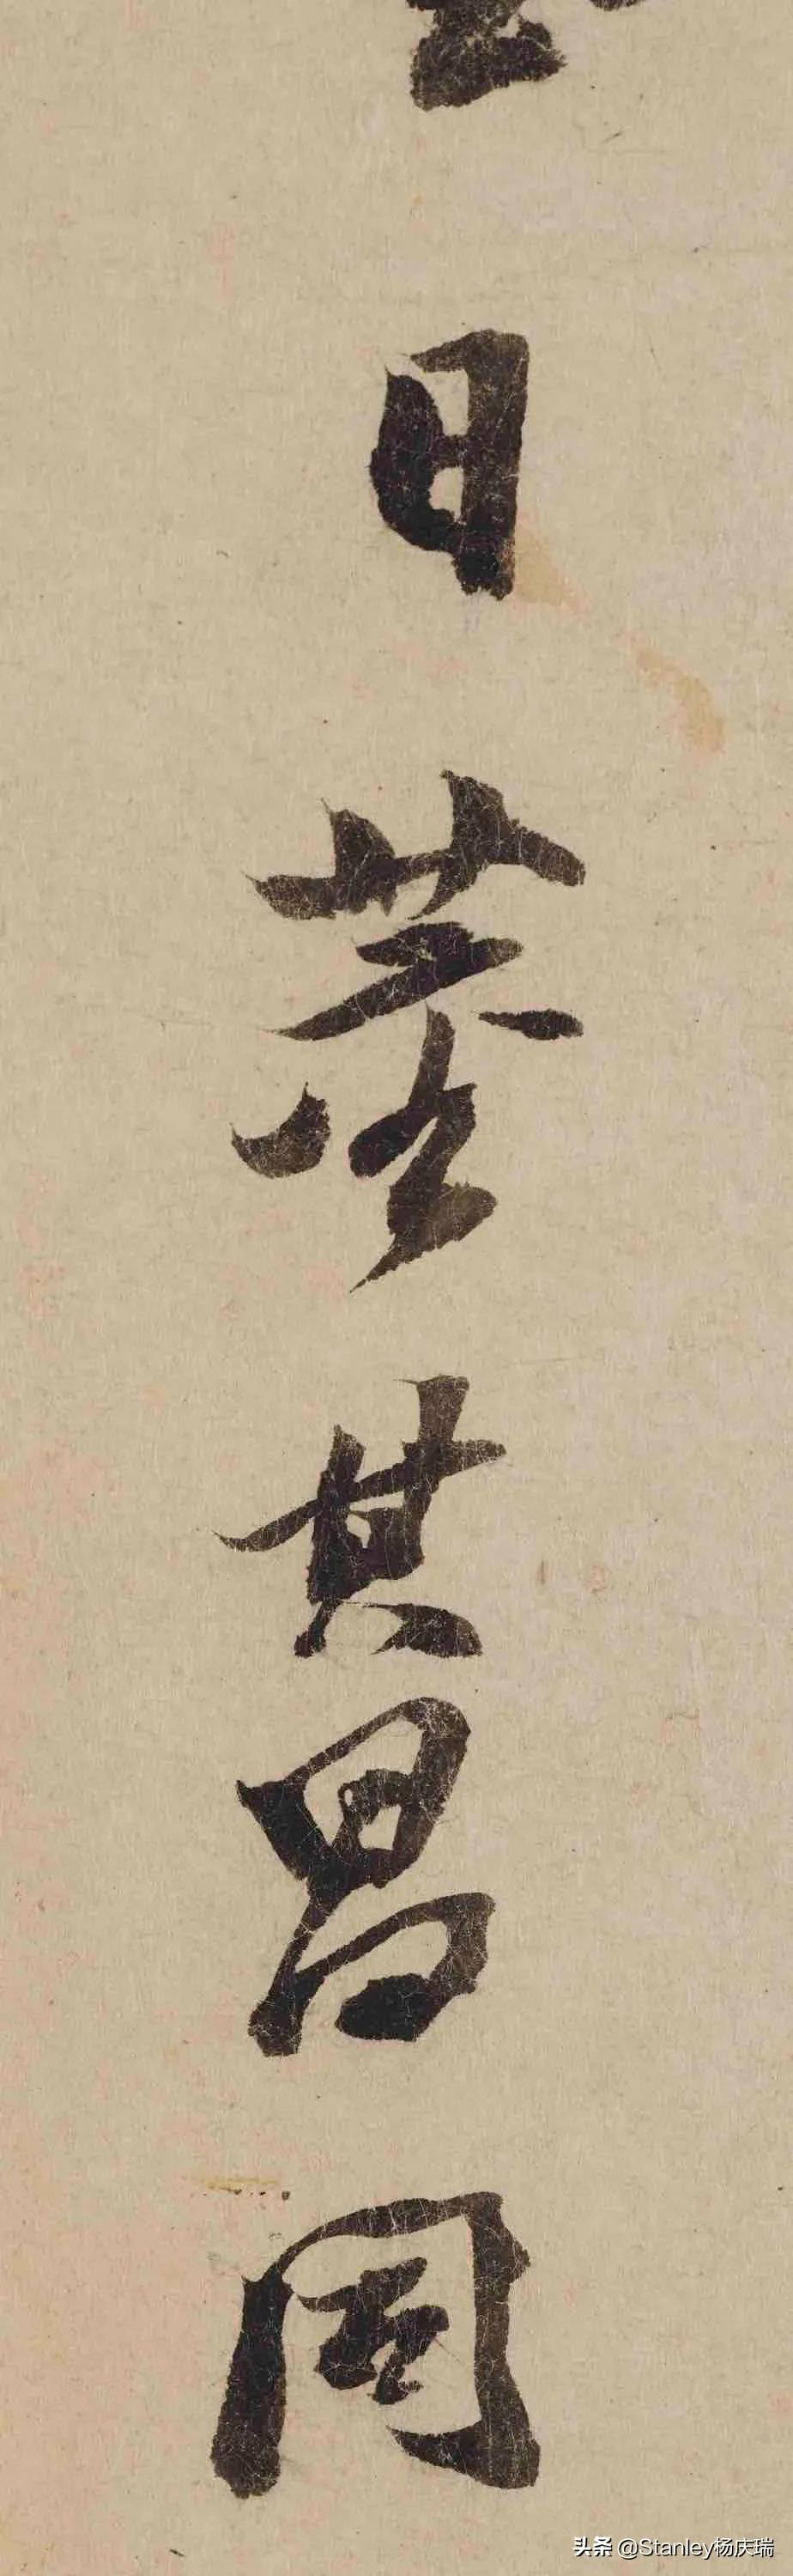 日
其
昌
同
头条 @Stanley杨庆瑞